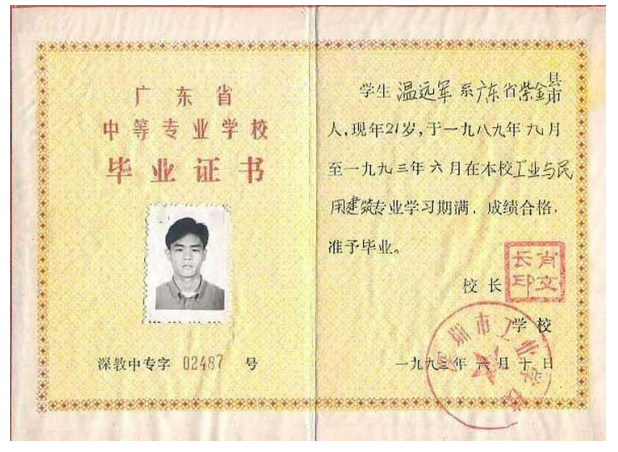 广东省
中等专业学校
毕业证书
深教中专字 02487 号
学生 温远军 系广东省紫金县市
人,现年21岁,于一九八九年九月
至一九九三年六月在本校工业与民
用建筑专业学习期满,成绩合格,
准予毕业。
校长
肖文
长印
学校
深圳市工业学校
一九九三年六月十日